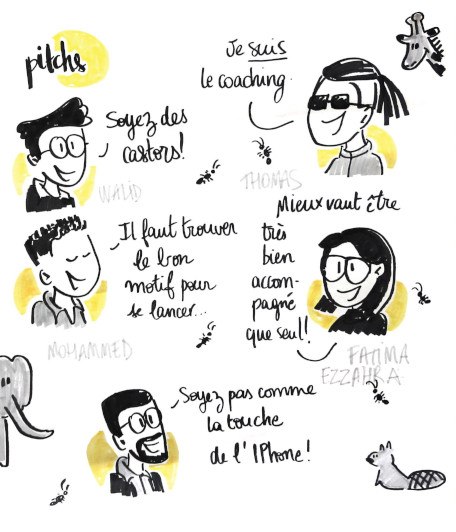 pitchs
Je suis
le coaching.
Soyez des
castors!
WALID
THOMAS
Mieux vaut être
très
bien
accom-
pagné
que seul!
Il faut trouver
le bon
motif pour
se lancer...
MOHAMMED
FATIMA
EZZAHRA
Soyez pas comme
la touche
de l'IPhone!